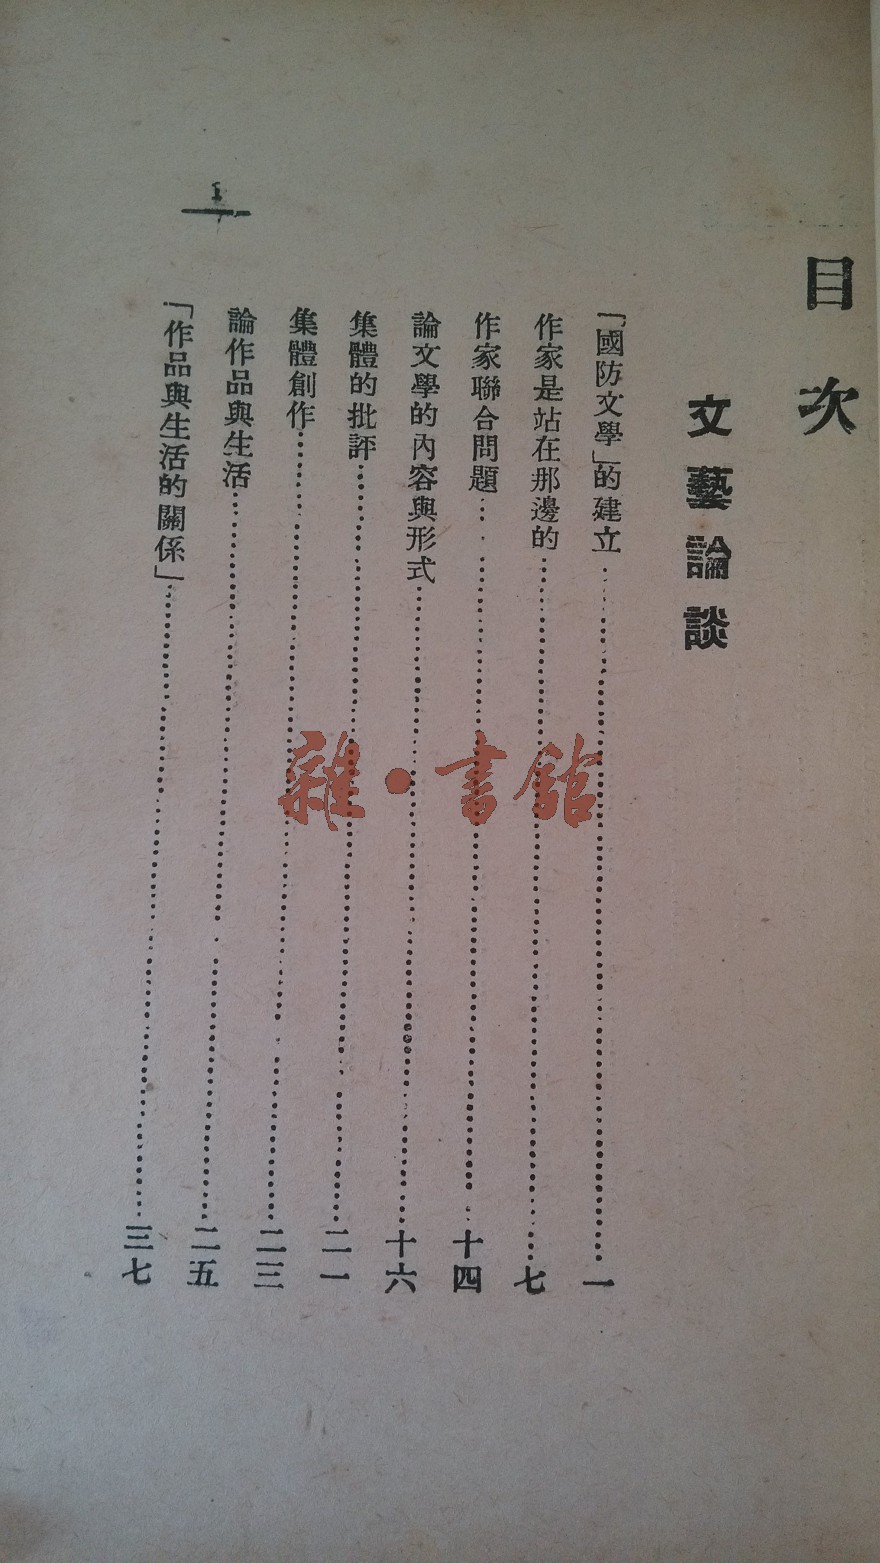 目次
文藝論談
「國防文學」的建立……一
作家是站在那邊的……七
作家聯合問題……十四
論文學的內容與形式……十六
集體的批評……二一
集體創作……二三
論作品與生活……二五
「作品與生活的關係」……三七
1
雜・書館